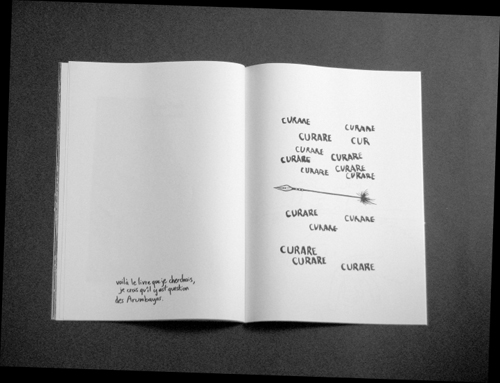 voilà le livre que je cherchais,
je crois qu'il y est question
des Arumbayas.
CURARE
CURARE
CURARE
CUR
CURARE
CURARE
CURARE
CURARE
CURARE
CURARE
CURARE
CURARE
CURARE
CURARE
CURARE
CURARE